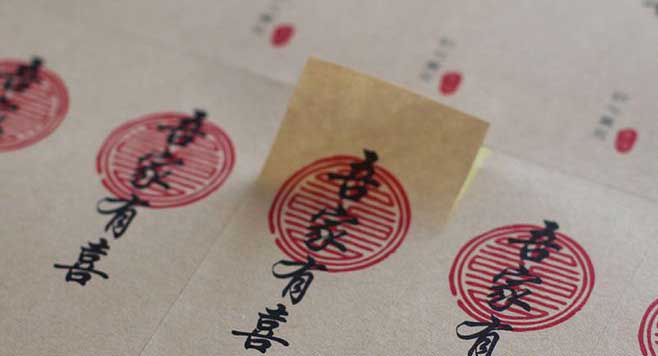 吾家
吾家有喜
吾家有喜
吾家有